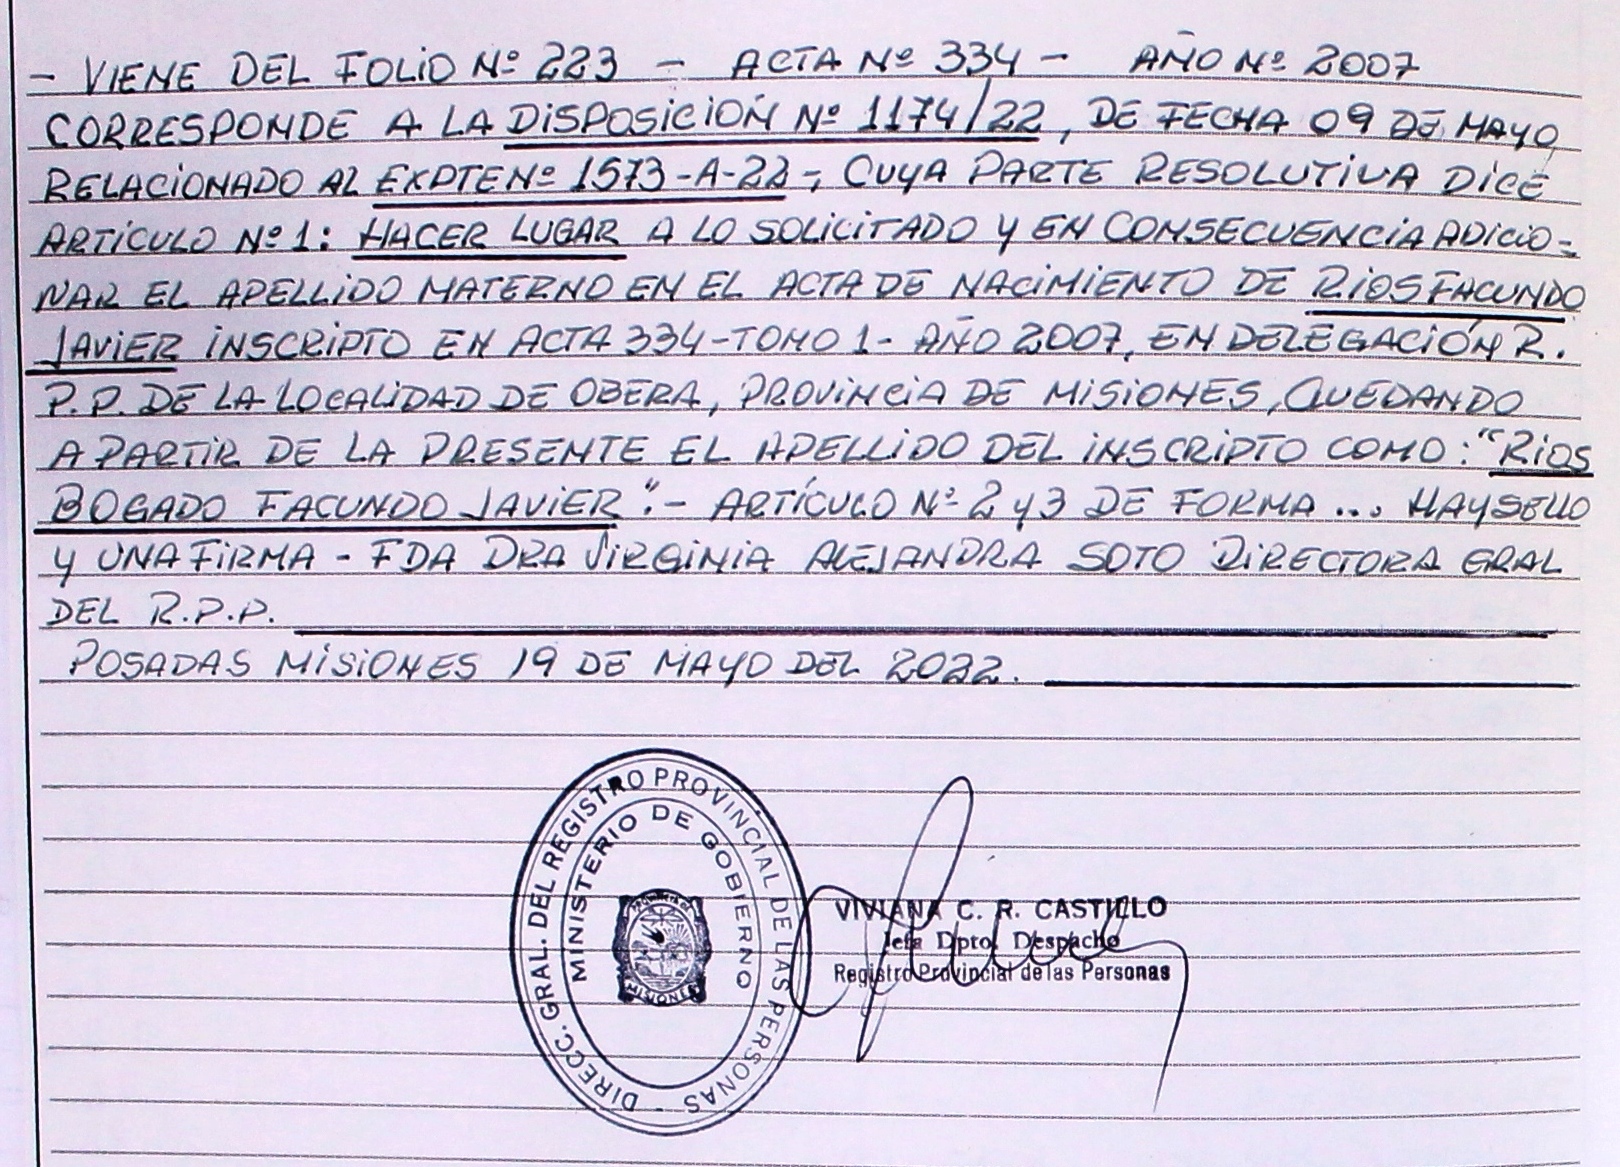 - VIENE DEL FOLIO Nº 223 - ACTA Nº 334 - AÑO Nº 2007
CORRESPONDE A LA DISPOSICIÓN Nº 1174/22, DE FECHA 09 DE MAYO
RELACIONADO AL EXPTE Nº 1573-A-22-, CUYA PARTE RESOLUTIVA DICE
ARTÍCULO Nº 1: HACER LUGAR A LO SOLICITADO Y EN CONSECUENCIA ADICIO=
NAR EL APELLIDO MATERNO EN EL ACTA DE NACIMIENTO DE RIOS FACUNDO
JAVIER INSCRIPTO EN ACTA 334-TOMO 1- AÑO 2007, EN DELEGACIÓN R.
P.P. DE LA LOCALIDAD DE OBERA, PROVINCIA DE MISIONES, QUEDANDO
A PARTIR DE LA PRESENTE EL APELLIDO DEL INSCRIPTO COMO: "RIOS
BOGADO FACUNDO JAVIER".- ARTÍCULO Nº 2 Y 3 DE FORMA... HAY SELLO
Y UNA FIRMA - FDA DRA VIRGINIA ALEJANDRA SOTO DIRECTORA GRAL
DEL R.P.P.
POSADAS MISIONES 19 DE MAYO DEL 2022.
DIRECC. GRAL. DEL REGISTRO PROVINCIAL DE LAS PERSONAS -
MINISTERIO DE GOBIERNO
MISIONES
VIVIANA C. R. CASTILLO
Jefa Dpto. Despacho
Registro Provincial de las Personas